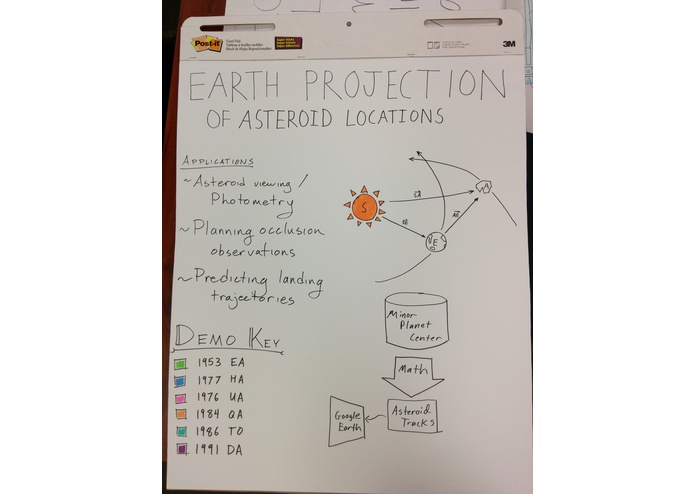 Post-it
Super Sticky
3M
EARTH PROJECTION
OF ASTEROID LOCATIONS
APPLICATIONS
~ Asteroid viewing /
Photometry
~ Planning occlusion
observations
~ Predicting landing
trajectories
S
E
A
DEMO KEY
1953 EA
1977 HA
1976 UA
1984 QA
1986 TO
1991 DA
Minor
Planet
Center
Math
Asteroid
Tracks
Google
Earth